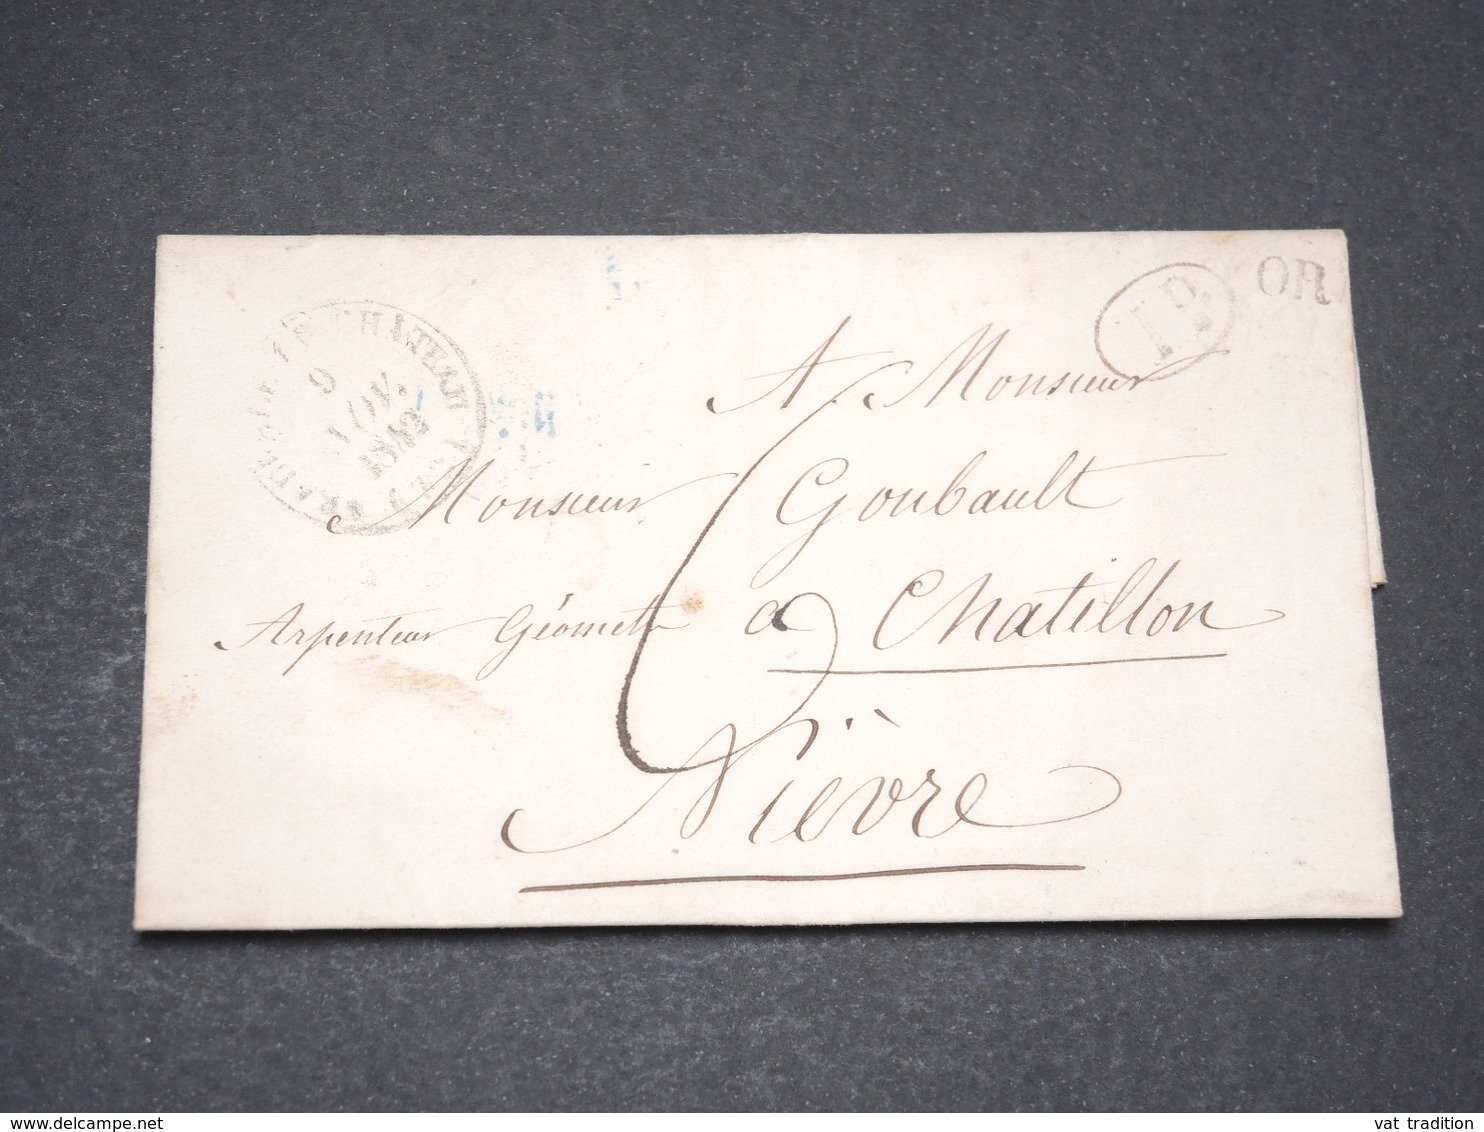 CHATEAU
9
NOV.
1842
I D.
OR
A Monsieur
Monsieur Goubault
Arpenteur Géomet a Chatillon
Nièvre
6
delcampe.net
vat tradition